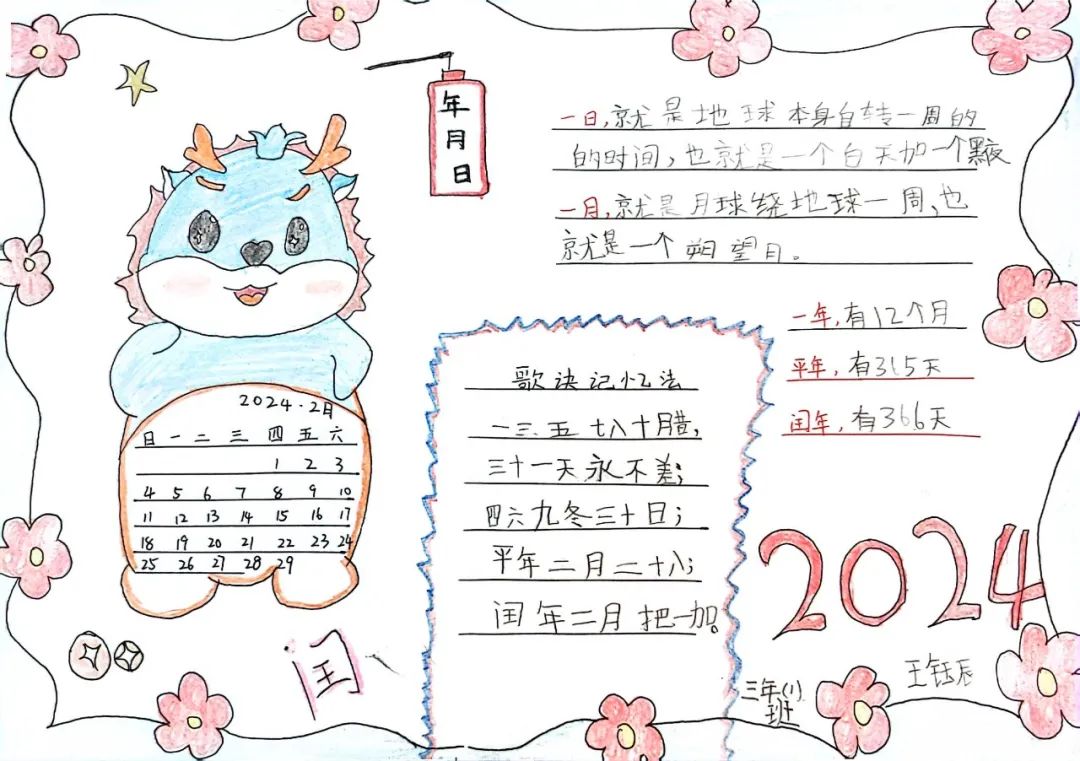 年月日
一日,就是地球本身自转一周的
的时间,也就是一个白天加一个黑夜
一月,就是月球绕地球一周,也
就是一个朔望月。
一年,有12个月
平年,有315天
闰年,有366天
2024.2月
日 一 二 三 四 五 六
1 2 3
4 5 6 7 8 9 10
11 12 13 14 15 16 17
18 19 20 21 22 23 24
25 26 27 28 29
歌诀记忆法
一三五七八十腊,
三十一天永不差;
四六九冬三十日;
平年二月二十八;
闰年二月把一加。
2024
闰
三年(1)
班
王钰辰